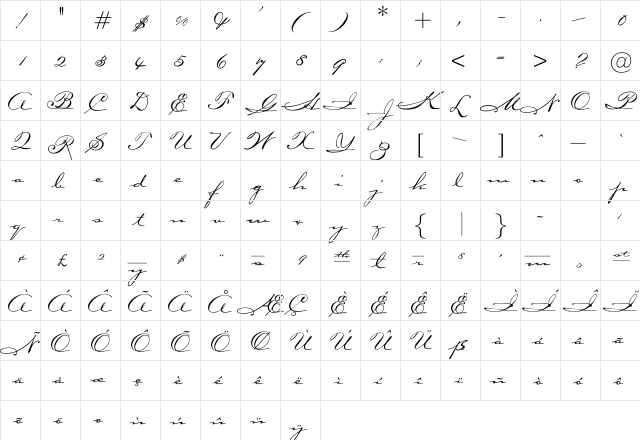 ! " # $ % & ' ( ) * + , - . / 0
1 2 3 4 5 6 7 8 9 : ; < = > ? @
A B C D E F G H I J K L M N O P
Q R S T U V W X Y Z [ \ ] ˆ _ `
a b c d e f g h i j k l m n o p
q r s t u v w x y z { | } ~ ´
£ 2 ¨ 9 th t r 8 m st
À Á Â Ã Ä Å Æ Ç È É Ê Ë Ì Í Î Ï
Ñ Ò Ó Ô Õ Ö Ø Ù Ú Û Ü ß à á â ã
ä å æ ç è é ê ë ì í î ï ñ ò ó ô
õ ö ø ù ú û ü ÿ